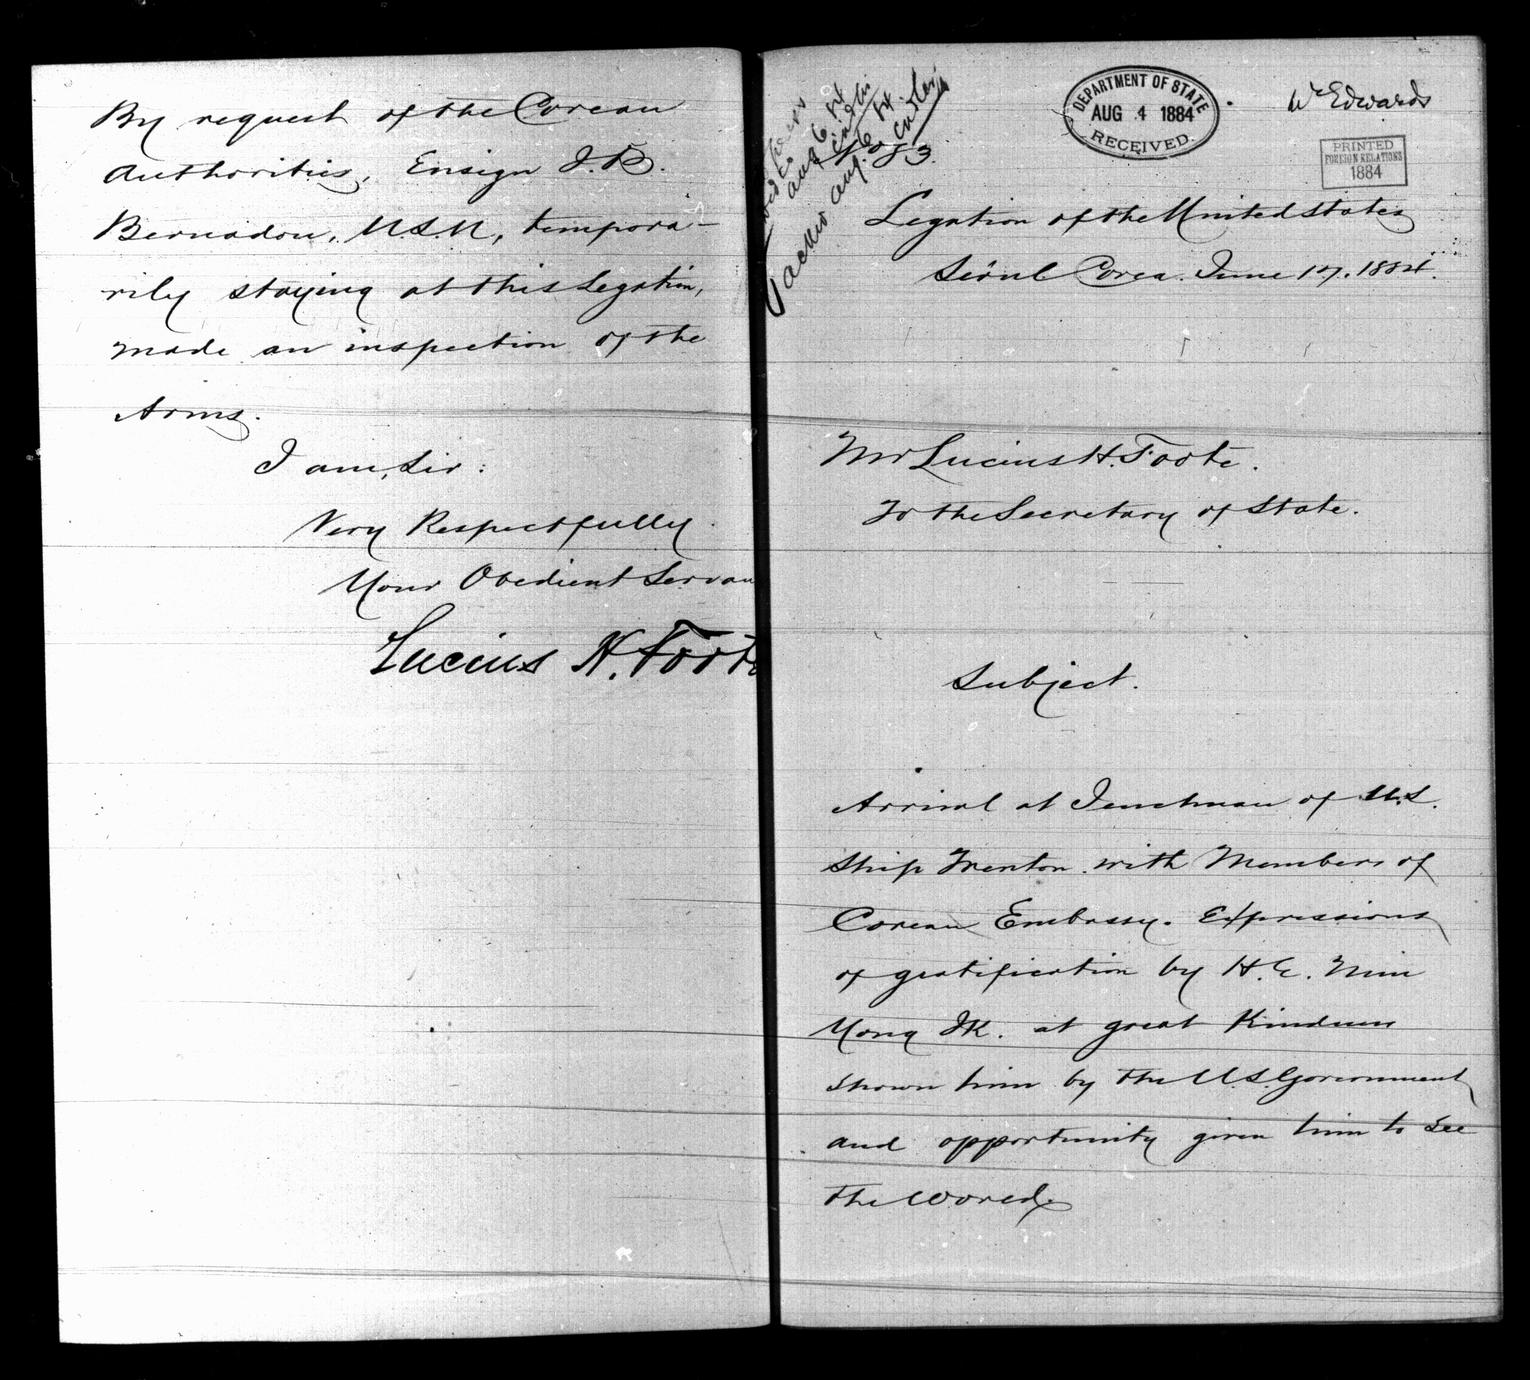 By request of the Corean
Authorities, Ensign J.B.
Bernadou, U.S.N, tempora-
rily staying at this Legation,
made an inspection of the
Arms.
I am, Sir:
Very Respectfully
Your Obedient Servan
Lucius H. Foote
DEPARTMENT OF STATE
AUG 4 1884
RECEIVED.
Mr Edwards
PRINTED
FOREIGN RELATIONS
1884
No 83.
Legation of the United States
Sëoul Corea. June 17, 1884.
Mr Lucius H. Foote.
To the Secretary of State.
Subject.
Arrival at Jenchuan of U.S.
Ship Trenton. with Members of
Corean Embassy. Expressions
of gratification by H.E. Min
Yong Ik. at great Kindness
shown him by the U.S. Government
and opportunity given him to see
the World.